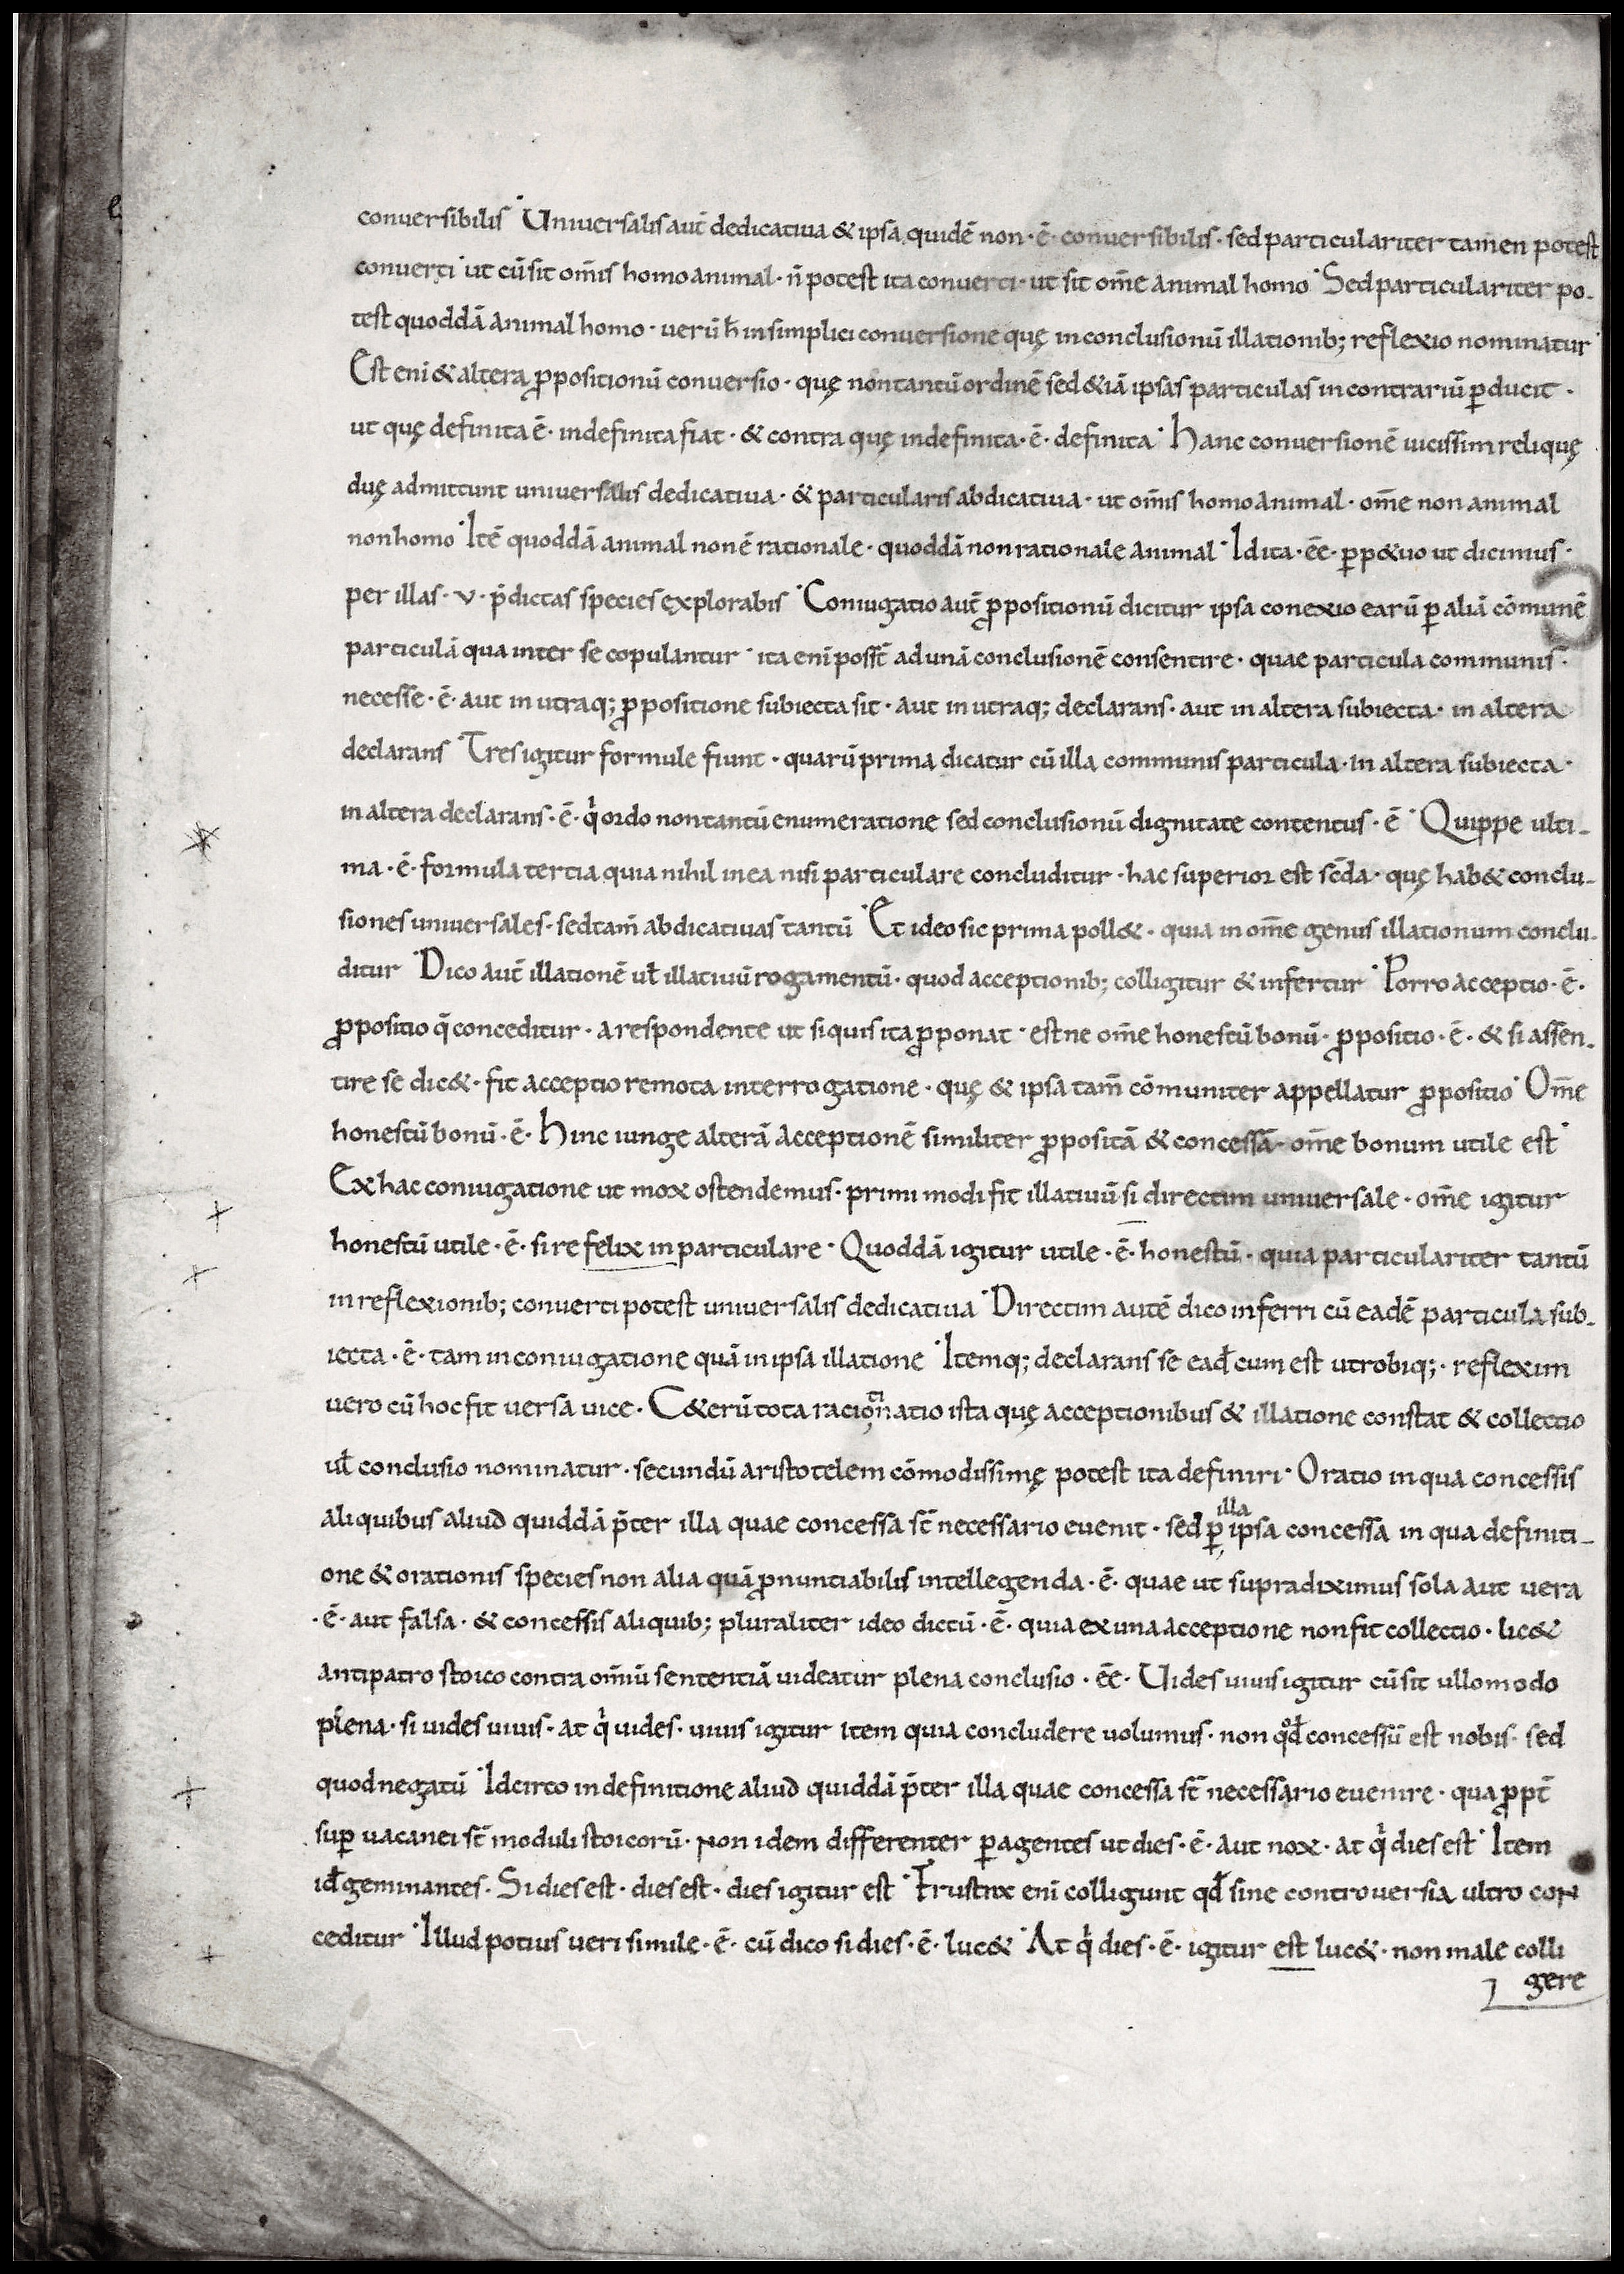 conuersibilis ˙Uniuersalis aut̄ dedicatiua & ipsa quidē non · ē · conuersibilis · sed particulariter tamen potest
conuerti ˙ ut cū sit om̄is homo animal · n̄ potest ita conuerti · ut sit om̄e animal homo ˙ Sed particulariter po-
test quoddā animal homo · uerū h̄ in simplici conuersione quę in conclusionū illationib; reflexio nominatur ˙
Est eni & altera ꝓpositionū conuersio · quę non tantū ordinē sed &iā ipsas particulas in contrariū ꝑducit ·
ut quę definita ē · indefinita fiat · & contra quę indefinita · ē · definita ˙ Hanc conuersionē uicissim reliquę
duę admittunt uniuersalis dedicatiua · & particularis abdicatiua · ut om̄is homo animal · om̄e non animal
non homo ˙ Itē quoddā animal non ē rationale · quoddā non rationale animal ˙ Id ita · ēe · ꝑp&uo ut dicimus ·
per illas · v · p̄dictas species explorabis ˙ Coniugatio aut̄ ꝓpositionū dicitur ipsa conexio earū ꝑ aliā cōmunē
particulā qua inter se copulantur ˙ ita eni poss̄t ad unā conclusionē consentire · quae particula communis ·
necesse · ē · aut in utraq; ꝓpositione subiecta sit · aut in utraq; declarans · aut in altera subiecta · in altera
declarans ˙ Tres igitur formule fiunt · quarū prima dicatur cū illa communis particula · in altera subiecta ·
in altera declarans · ē · qͥ ordo non tantū enumeratione sed conclusionū dignitate contentus · ē ˙ Quippe ulti-
ma · ē · formula tertia quia nihil in ea nisi particulare concluditur · hac superior est sc̄da · quę hab& conclu-
siones uniuersales · sed tam̄ abdicatiuas tantū ˙ Et ideo sic prima poll& · quia in om̄e genus illationum conclu-
ditur ˙ Dico aut̄ illationē ul̄ illatiuū rogamentū · quod acceptionib; colligitur & infertur ˙ Porro acceptio · ē ·
ꝓpositio q̄ conceditur · a respondente ut si quis ita ꝓponat ˙ estne om̄e honestū bonū · ꝓpositio · ē · & si assen-
tire se dic& · fit acceptio remota interrogatione · quę & ipsa tam̄ cōmuniter appellatur ꝓpositio ˙ Om̄e
honestū bonū · ē · Hinc iunge alterā acceptionē similiter ꝓpositā & concessā · om̄e bonum utile est ˙
Ex hac coniugatione ut mox ostendemus · primi modi fit illatiuū si directim uniuersale · om̄e igitur
honestū utile · ē · si refelix in particulare · Quoddā igitur utile · ē · honestū · quia particulariter tantū
in reflexionib; conuerti potest uniuersalis dedicatiua ˙ Directim autē dico inferri cū eadē particula sub-
iecta · ē · tam in coniugatione quā in ipsa illatione ˙ Itemq; declarans se ead̄ cum est utrobiq; · reflexim
uero cū hoc fit uersa uice · C&erū tota racionatio ista quę acceptionibus & illatione constat & collectio
ul̄ conclusio nominatur · secundū aristotelem cōmodissimę potest ita definiri ˙ Oratio in qua concessis
illa
aliquibus aliud quiddā p̄ter illa quae concessa st̄ necessario euenit · sed ꝑ ipsa concessa in qua definiti-
one & orationis species non alia quā ꝓnuntiabilis intellegenda · ē · quae ut supra diximus sola aut uera
· ē · aut falsa · & concessis aliquib; pluraliter ideo dictū · ē · quia ex una acceptione non fit collectio · lic&
antipatro stoico contra om̄iū sententiā uideatur plena conclusio · ēe · Uides uiuis igitur cū sit ullomodo
plena · si uides uiuis · at qͥ uides · uiuis igitur item quia concludere uolumus · non qd̄ concessū est nobis · sed
quod negatū ˙ Idcirco in definitione aliud quiddā p̄ter illa quae concessa st̄ necessario euenire · qua ꝓpt̄
suꝑuacanei st̄ moduli stoicorū · Non idem differenter ꝑagentes ut dies · ē · aut nox · at qͥ dies est ˙ Item
id̄ geminantes · Si dies est · dies est · dies igitur est ˙ Frustrax eni colligunt qd̄ sine controuersia ultro con
ceditur ˙ Illud potius ueri simile · ē · cū dico si dies · ē · luc& ˙ At qͥ dies · ē · igitur est luc& · non male colli
gere